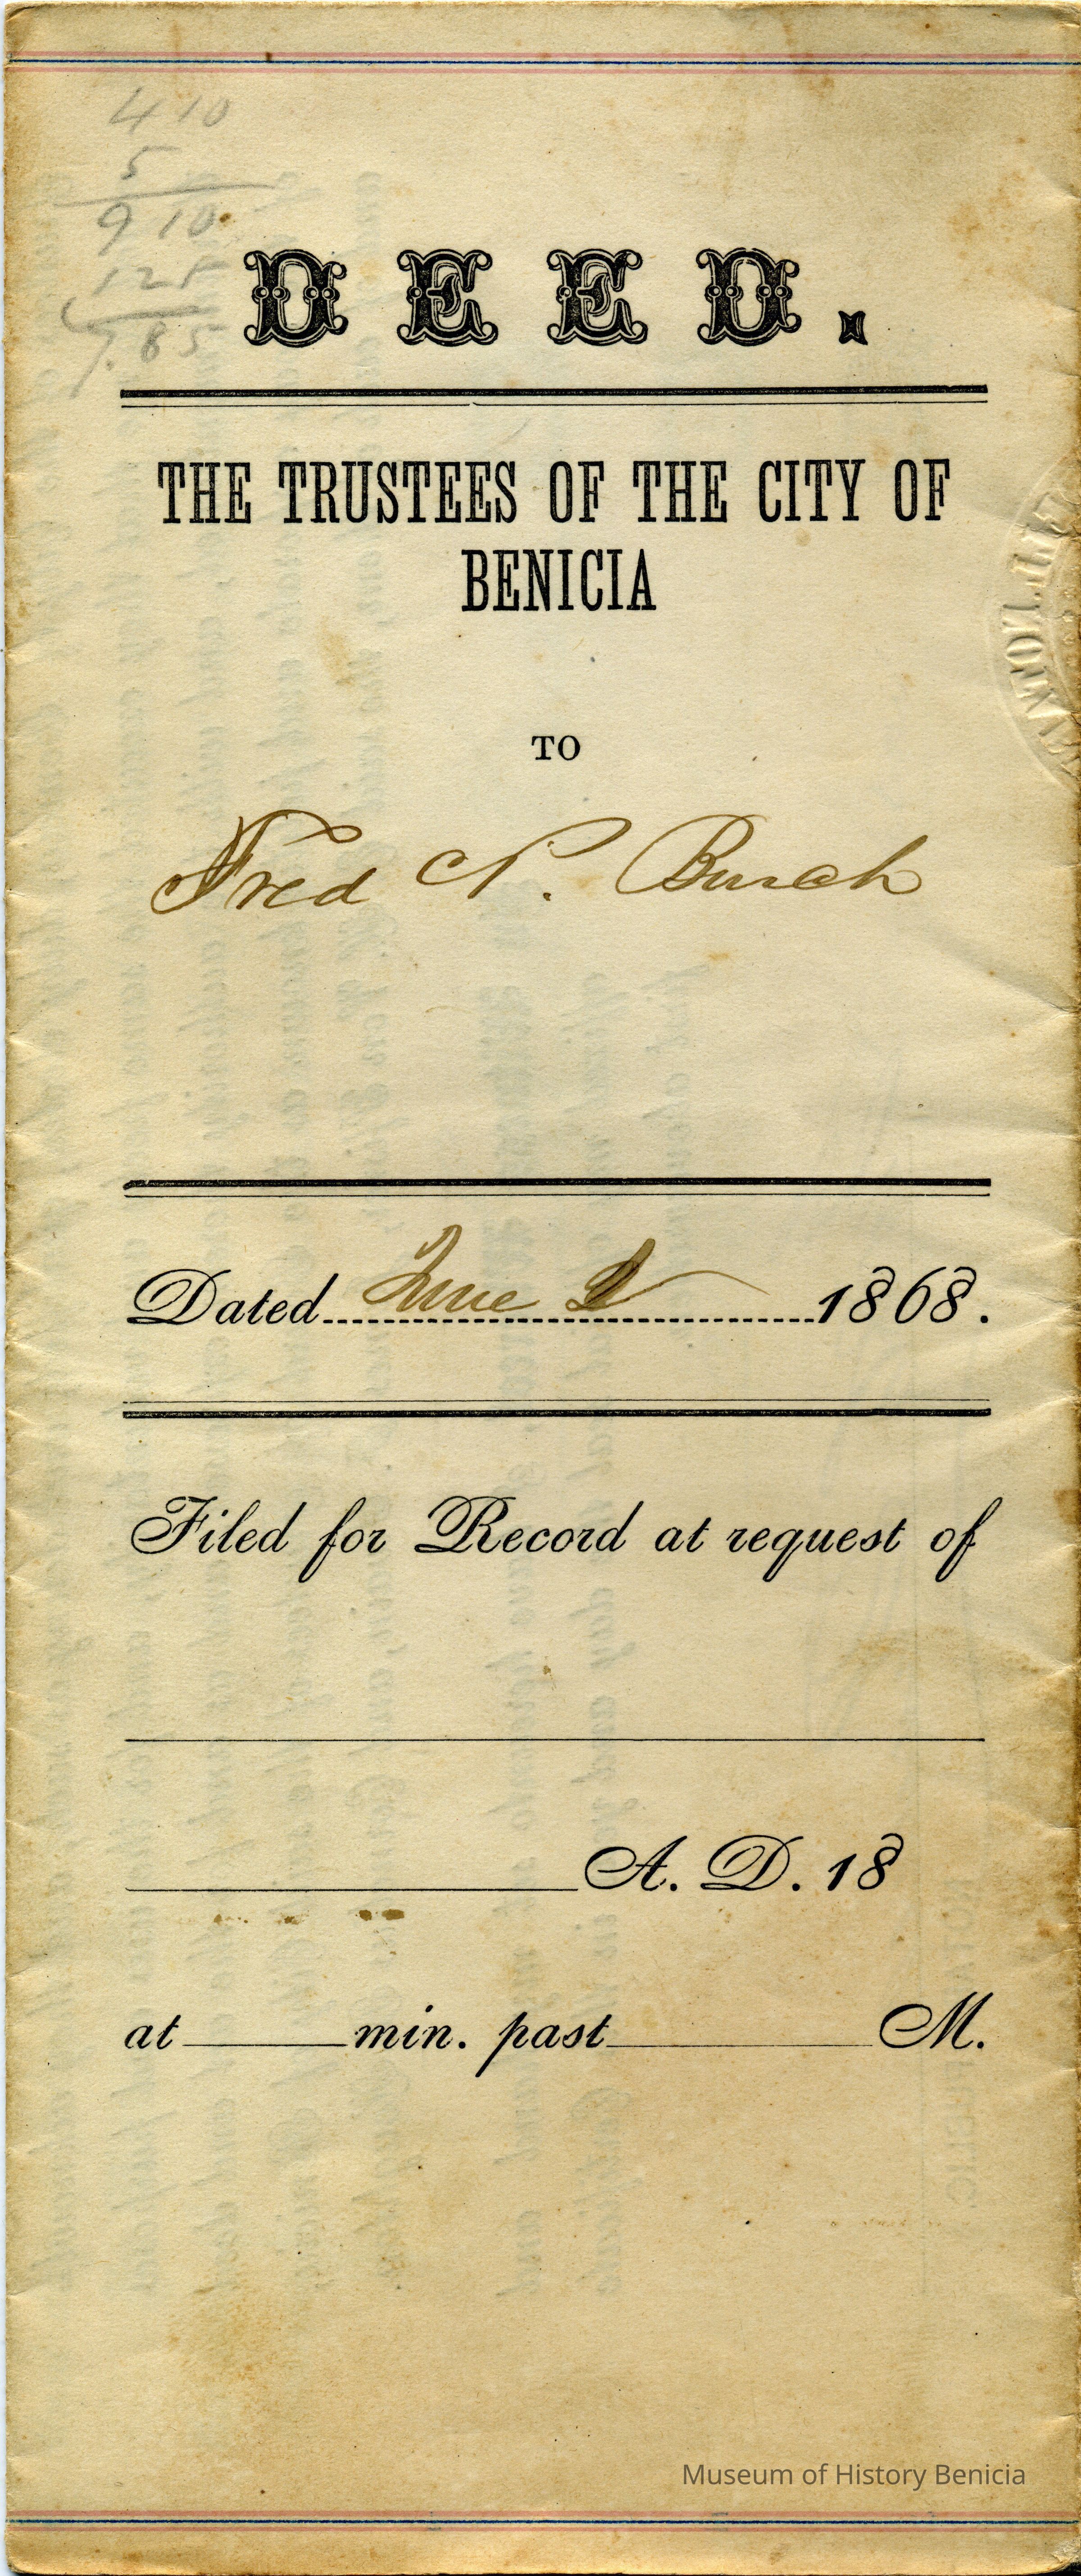 4 10
5
9 10
1 25
7.85
DEED.
THE TRUSTEES OF THE CITY OF
BENICIA
TO
Fred N. Burch
Dated June 2 1868.
Filed for Record at request of
A. D. 18
at min. past M.
Museum of History Benicia